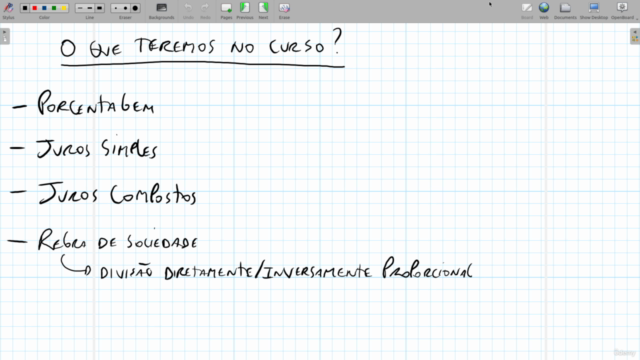 Stylus Color Line Eraser Backgrounds Pages Previous Next Erase Board Web Documents Show Desktop OpenBoard
O QUE TEREMOS NO CURSO?
- PORCENTAGEM
- JUROS SIMPLES
- JUROS COMPOSTOS
- REGRA DE SOCIEDADE
DIVISÃO DIRETAMENTE/INVERSAMENTE PROPORCIONAL